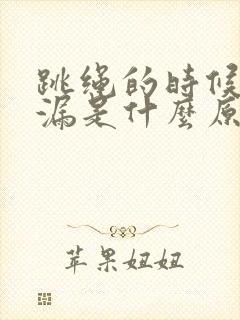 跳绳的时候
漏是什麽原
苹果妞妞